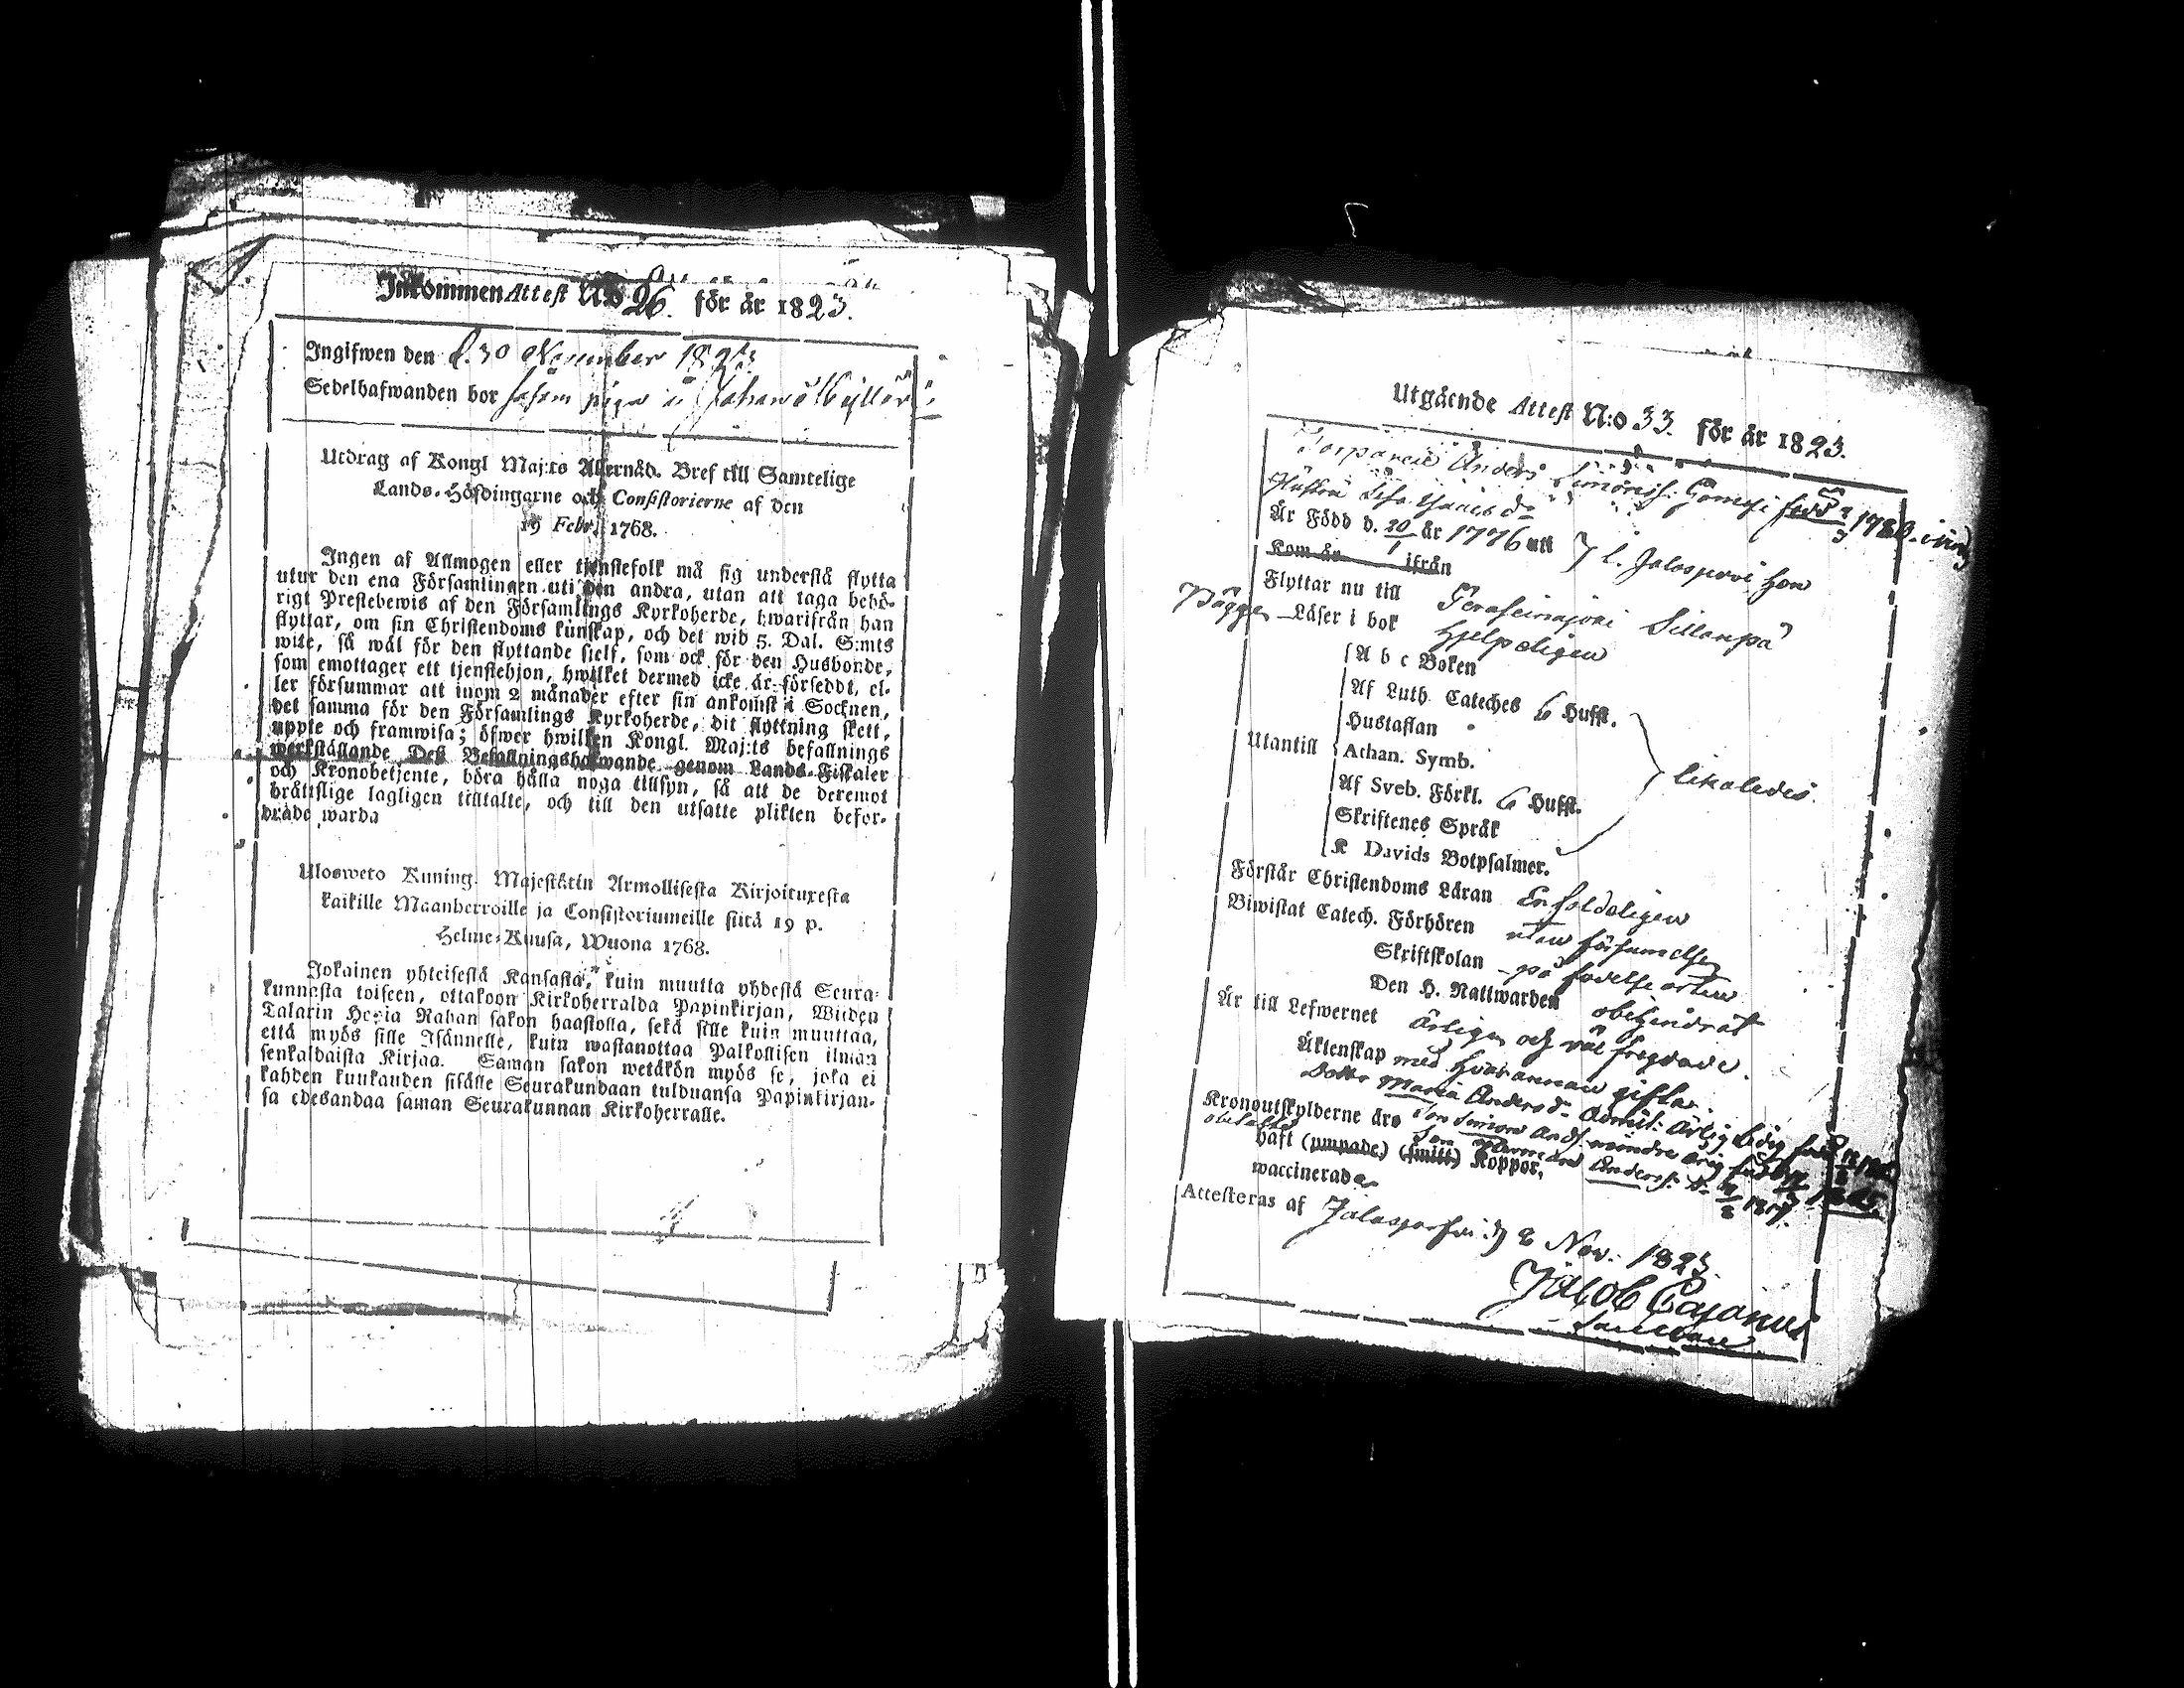 Inkommen Attest N:o 26. för år 1823.
Ingifwen den d. 30 November 1823
Sedelhafwanden bor såsom piga i
Utdrag af Kongl Maj:ts Allernåd. Bref till Samtelige
Lands-Höfdingarne och Consistorierne af den
19 Febr. 1768.
Ingen af Allmogen eller tjenstefolk må sig understå flytta
utur den ena Församlingen uti den andra, utan att taga behö-
rigt Prestebewis af den Församlings Kyrkoherde, hwarifrån han
flyttar, om sin Christendoms kunskap, och det wid 5. Dal. S:mts
wite, så wäl för den flyttande sjelf, som ock för den Husbonde,
som emottager ett tjenstehjon, hwilket dermed icke är försedt, el-
ler försummar att inom 2 månader efter sin ankomst i Socknen,
det samma för den Församlings Kyrkoherde, dit flyttning skett,
uppte och framwisa; öfwer hwilken Kongl. Maj:ts befallnings
werkställande Dess Befallningshafwande genom Lands-Fiskaler
och Kronobetjente, böra hålla noga tillsyn, så att de deremot
brättslige lagligen tilltalte, och till den utsatte plikten befor-
drade warda
Ulosweto Kuning. Majestätin Armollisesta Kirjoituxesta
kaikille Maanherroille ja Consistoriumeille siitä 19 p.
Helme-Kuusa, Wuona 1768.
Jokainen yhteisestä Kansasta, kuin muutta yhdestä Seura-
kunnasta toiseen, ottakoon Kirkoherralda Papinkirjan, Wiiden
Talarin Hopia Rahan sakon haastolla, sekä sille kuin muuttaa,
että myös sille Isännelle, kuin wastanottaa Palkollisen ilman
senkaldaista Kirjaa. Saman sakon wetäkön myös se, joka ei
kahden kuukauden sisälle Seurakundaan tulduansa Papinkirjan-
sa edesandaa saman Seurakunnan Kirkoherralle.
Utgående Attest N:o 33. för år 1823.
Torparen Anders
Hustru
Är Född d. 20/1 år 1776 uti Jalasjerfvi hon
Kom år ifrån
Flyttar nu till Peraseinäjoki Sillanpä
Bägge Läser i bok hjelpeligen
A b c Boken
Af Luth. Cateches 6 Huffst.
Hustaflan
Utantill
Athan. Symb.
likaledes
Af Sveb. Förkl. 6 Huffst.
Skriftenes Språk
K Davids Botpsalmer.
Förstår Christendoms Läran Enfaldeligen
Biwistat Catech. Förhören utan försumelse
Skriftskolan på födelse orten
Den H. Nattwarden obehindrat
Är till Lefwernet ärligen och väl fregdade.
Äktenskap med hvarannan giftar.
Dotter Maria Andersd:r
Kronoutskylderne äro obetalte Son Simon
haft (ympade) (smitt) Koppor, Son
waccinerade
Attesteras af Jalasjerfvi d. 2 Nov: 1823.
Jacob Cajanus